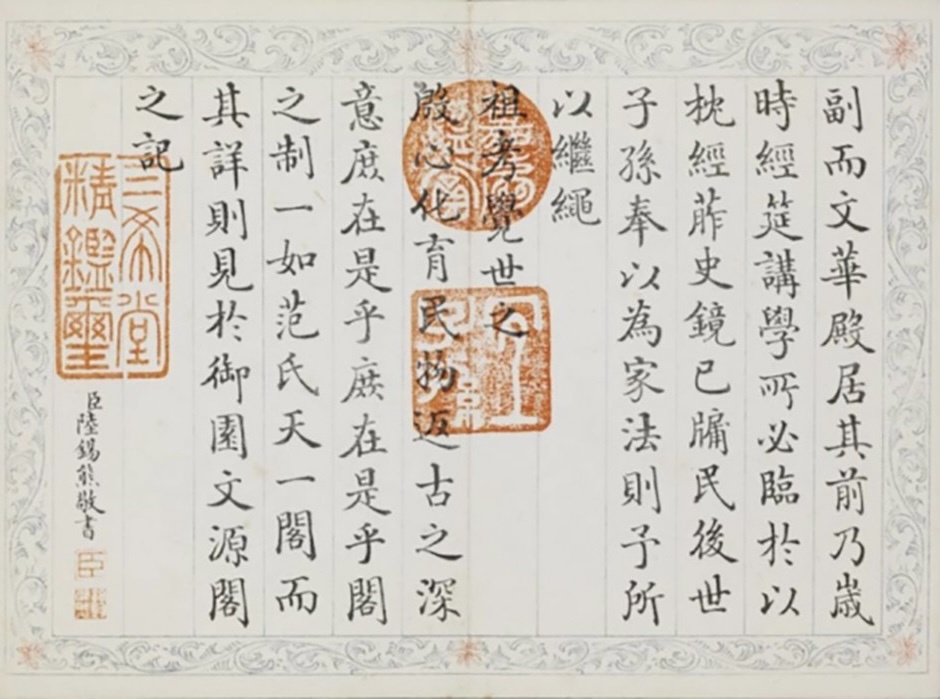 副而文華殿居其前乃歲
時經筵講學所必臨於以
枕經葄史鏡已牖民後世
子孫奉以為家法則予所
以繼繩
祖考覺世之
殷心化育民物返古之深
意庶在是乎庶在是乎閣
之制一如范氏天一閣而
其詳則見於御園文源閣
之記
臣陸錫熊敬書
臣
三希堂
精鑑璽
宜
子孫